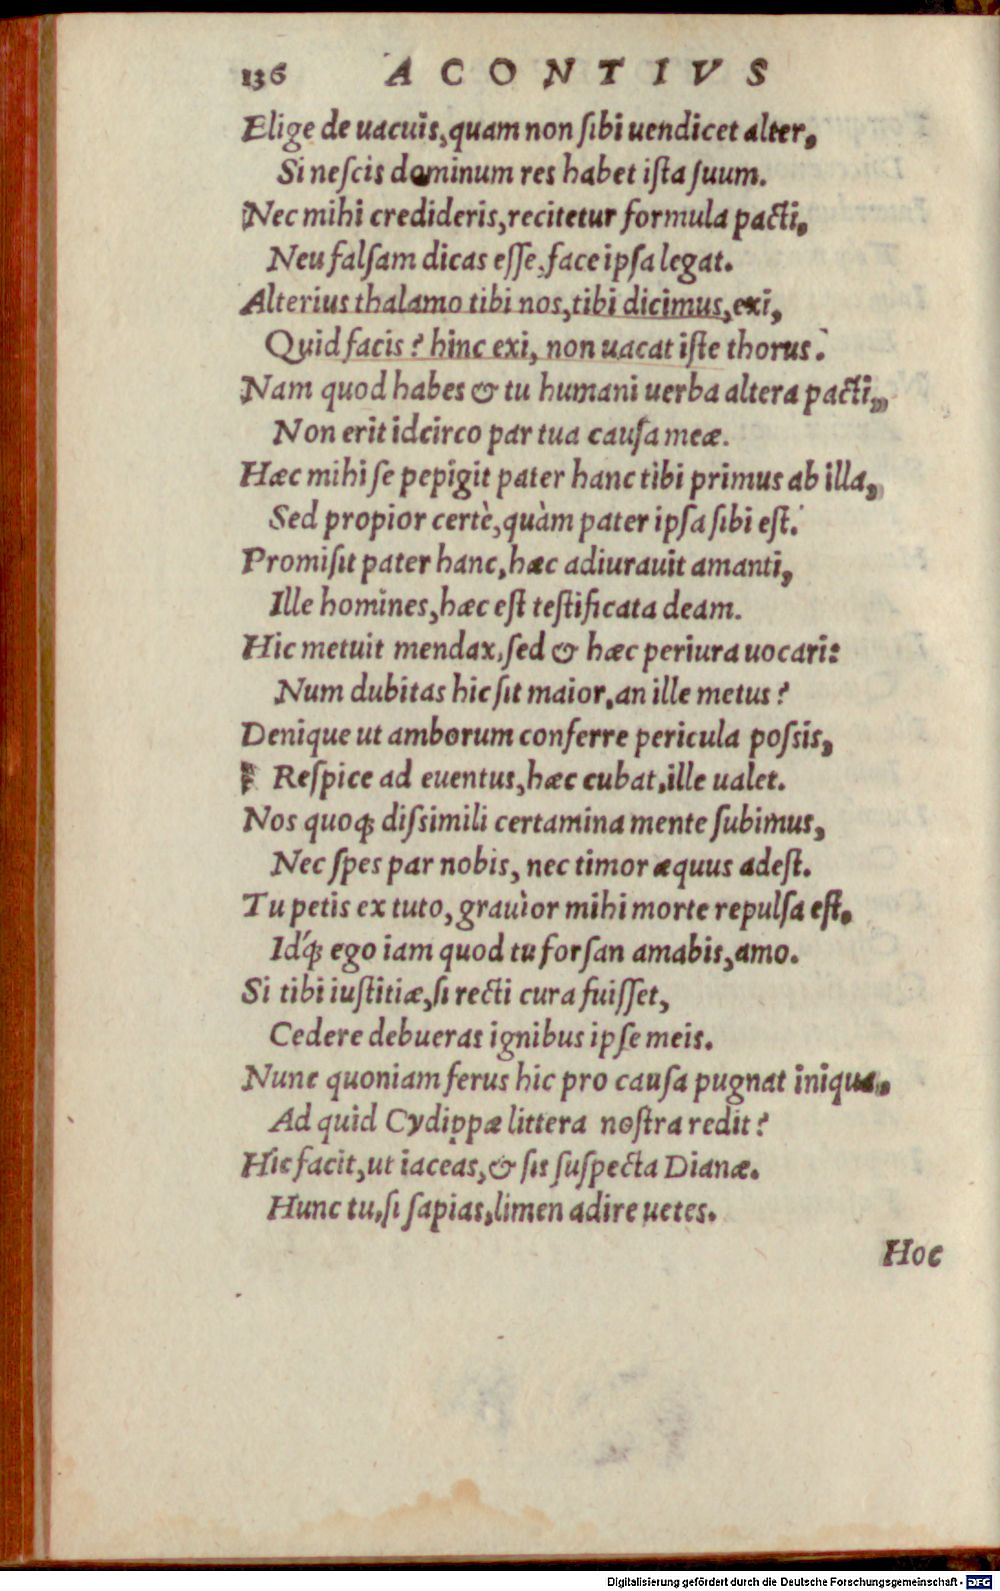 136 ACONTIVS
Elige de uacuis, quam non sibi uendicet alter,
Si nescis dominum res habet ista suum.
Nec mihi credideris, recitetur formula pacti,
Neu falsam dicas esse, face ipsa legat.
Alterius thalamo tibi nos, tibi dicimus, exi,
Quid facis? hinc exi, non uacat iste thorus.
Nam quod habes & tu humani uerba altera pacti,
Non erit idcirco par tua causa meæ.
Hæc mihi se pepigit pater hanc tibi primus ab illa,
Sed propior certè, quàm pater ipsa sibi est.
Promisit pater hanc, hæc adiurauit amanti,
Ille homines, hæc est testificata deam.
Hic metuit mendax, sed & hæc periura uocari:
Num dubitas hic sit maior, an ille metus?
Denique ut amborum conferre pericula possis,
Respice ad euentus, hæc cubat, ille ualet.
Nos quoq; dissimili certamina mente subimus,
Nec spes par nobis, nec timor æquus adest.
Tu petis ex tuto, grauior mihi morte repulsa est.
Idq́; ego iam quod tu forsan amabis, amo.
Si tibi iustitiæ, si recti cura fuisset,
Cedere debueras ignibus ipse meis.
Nunc quoniam ferus hic pro causa pugnat iniqua.
Ad quid Cydippæ littera nostra redit?
Hic facit, ut iaceas, & sis suspecta Dianæ.
Hunc tu, si sapias, limen adire uetes.
Hoc
Digitalisierung gefördert durch die Deutsche Forschungsgemeinschaft - DFG